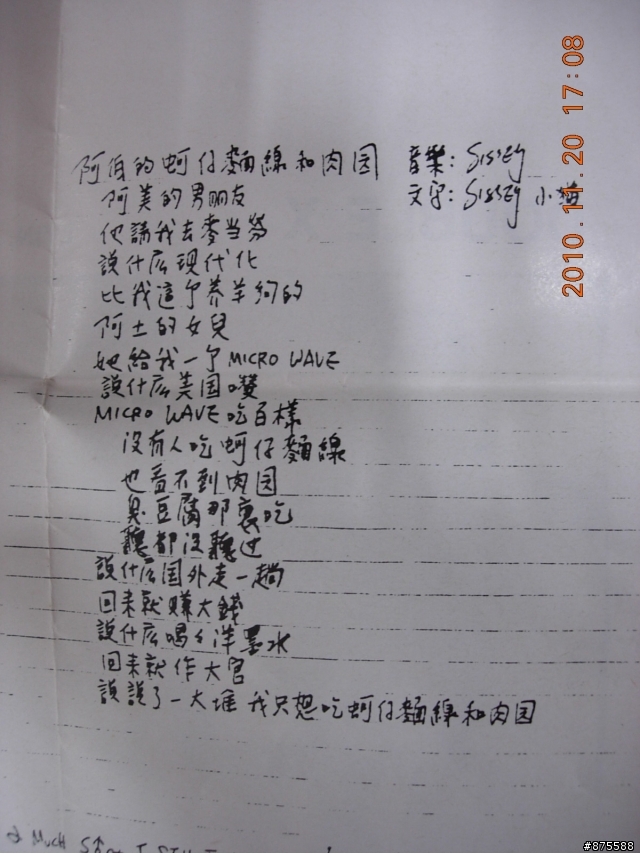 阿伯的蚵仔麵線和肉圆 音樂: SISSEY
文字: SISSEY 小
阿美的男朋友
他請我去麥当劳
說什庅現代化
比我這个养羊狗的
阿土的女兒
她給我一个 MICRO WAVE
說什庅美国讚
MICRO WAVE 吃百樣
没有人吃蚵仔麵線
也看不到肉圆
臭豆腐那裏吃
聽都没聽过
說什庅国外走一趟
回来就赚大錢
說什庅喝々洋墨水
回来就作大官
說說了一大堆 我只想吃蚵仔麵線和肉圆
MUCH
2010.11.20 17:08
#875588